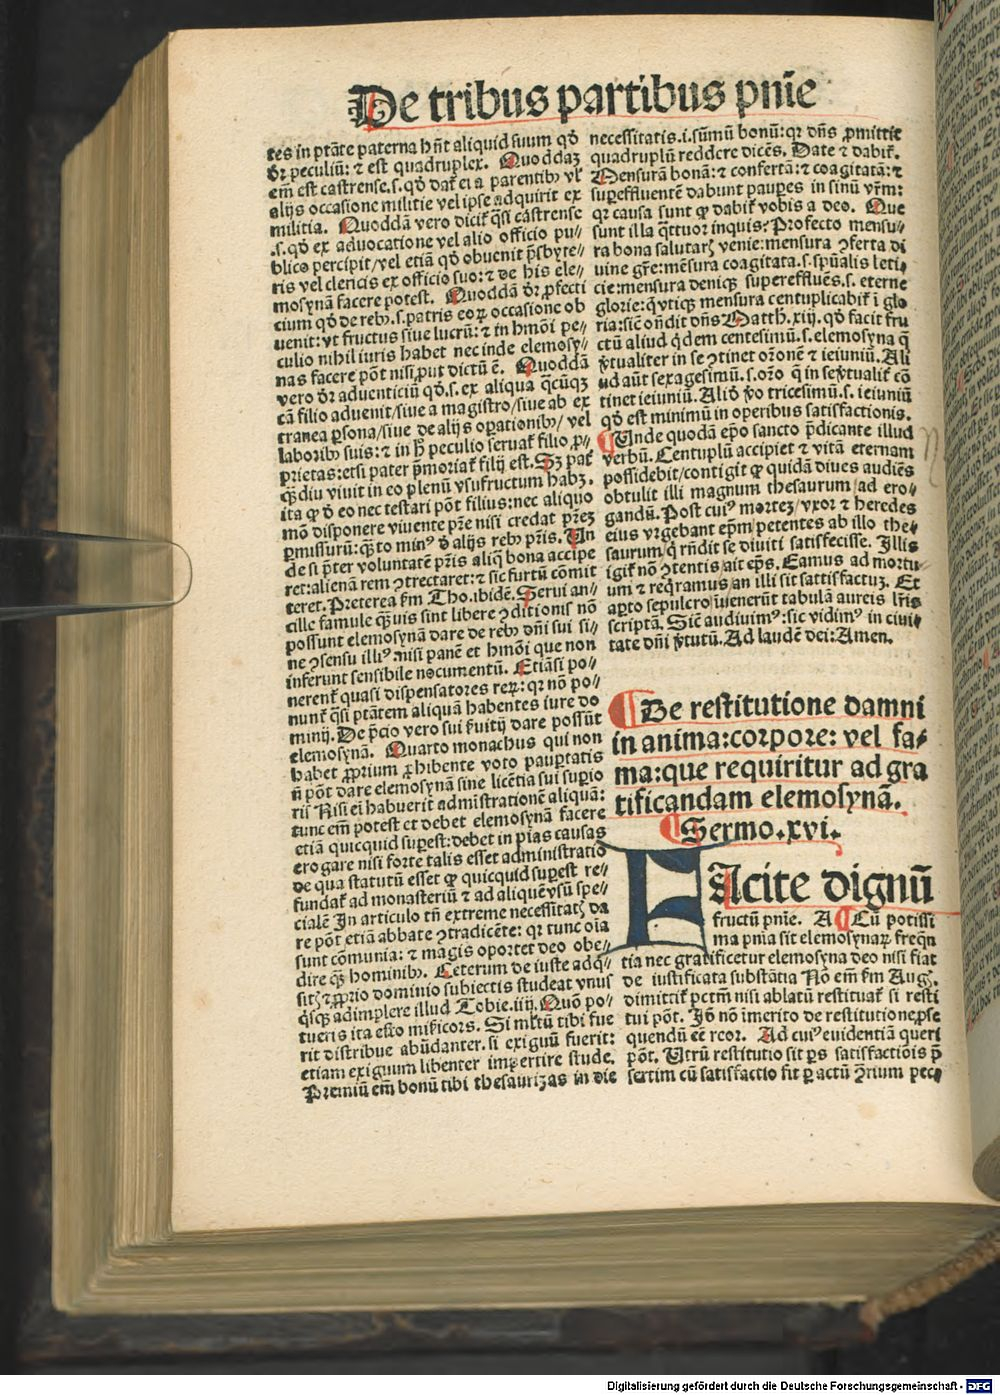 De tribus partibus pnīe
tes in ptāte paterna hn̄t aliquid suum qd̄
dr̄ peculiū: ⁊ est quadruplex. Quoddaꝫ
em̄ est castrense.s.qd̄ dat̄ ei a parentibꝰ vl̓
alijs occasione militie vel ipse adquirit ex
militia. Quoddā vero dicit̄ q̄si castrense
.s.qd̄ ex aduocatione vel alio officio pu//
blico percipit/vel etiā qd̄ obuenit p̄sbyte//
ris vel clericis ex officio suo:⁊ de his ele//
mosynā facere potest. Quoddā dr̄ ꝓfecti
cium qd̄ de rebꝰ.s.patris eoꝝ occasione ob
uenit:vt fructus siue lucrū:⁊ in hmōi pe//
culio nihil iuris habet nec inde elemosy//
nas facere pōt nisi ꝓut dictū ē. Quoddā
vero dr̄ aduenticiū qd̄.s.ex aliqua q̄cūqꝫ
cā filio aduenit/siue a magistro/siue ab ex
tranea ꝑsona/siue de alijs oꝑationibꝰ/vel
laboribꝰ suis:⁊ in h̄ peculio seruat̄ filio ꝓ//
prietas:etsi pater p̄moriat̄ filij est.Sꝫ pat̄
q̄ꝫdiu viuit in eo plenū vsufructum habꝫ.
ita ꝙ d̄ eo nec testari pōt filius:nec aliquo
mō disponere viuente pr̄e nisi credat pr̄eꝫ
ꝑmissurū:q̄ꝫto minꝰ d̄ alijs rebꝰ pr̄is. Vn
de si p̄ter voluntatē pr̄is aliq̄ bona accipe
ret:alienā rem ꝯtrectaret:⁊ sic furtū cōmit
teret.Preterea fm̄ Tho.ibidē.Serui an//
cille famule q̄ꝫuis sint libere ꝯditionis nō
possunt elemosynā dare de rebꝰ dn̄i sui si//
ne ꝯsensu illiꝰ nisi panē et hmōi que non
inferunt sensibile nocumentū. Etiāsi po//
nerent̄ quasi dispensatores reꝝ: qꝛ nō po//
nunt̄ q̄si ptātem aliquā habentes iure do
minij. De p̄cio vero sui ẜuitij dare possūt
elemosynā. Quarto monachus qui non
habet ꝓprium ꝓhibente voto pauꝑtatis
n̄ pōt dare elemosynā sine licētia sui suꝑio
ris Nisi ei habuerit admistrationē aliquā:
tunc em̄ potest et debet elemosynā facere
etiā quicquid suꝑest:debet in pias causas
erogare nisi forte talis esset administratio
de qua statutū esset ꝙ quicquid suꝑest re//
fundat̄ ad monasteriū ⁊ ad aliquē vsū spe//
cialē In articulo tn̄ extreme necessitatꝭ da
re pōt etiā abbate ꝯtradicēte: qꝛ tunc oīa
sunt cōmunia: ⁊ magis oportet deo obe//
dire q̄ꝫ hominibꝰ. Ceterum de iuste adq̄//
sitꝭ ⁊ ꝓprio dominio subiectis studeat vnus
q̄sqꝫ adimplere illud Tobie.iiij. Quō po//
tueris ita esto mīicors. Si ml̓tū tibi fue
rit distribue abūdanter.si exiguū fuerit:
etiam exiguum libenter impertire stude.
Premiū em̄ bonū tibi thesaurizas in die
necessitatis.i.sūmū bonū:qꝛ dn̄s ꝓmittit
quadruplū reddere dicēs. Date ⁊ dabit̄.
Mensurā bonā: ⁊ confertā: ⁊ coagitatā: ⁊
suꝑeffluentē dabunt pauꝑes in sinū vr̄m:
qꝛ causa sunt ꝙ dabit̄ vobis a deo. Que
sunt illa q̄ttuor inquis? Profecto mensu//
ra bona salutarꝭ venie:mensura ꝯferta di
uine gr̄e:mēsura coagitata.s.spūalis leti//
cie:mensura deniqꝫ superefflues.s.eterne
glorie:q̄ vtiqꝫ mensura centuplicabit̄ ī glo
ria:sic̄ on̄dit dn̄s Matth.xiij.qd̄ facit fru
ctū aliud q̄dem centesimū.s.elemosyna q̄
v̓tualiter in se ꝯtinet orōnē ⁊ ieiuniū. Ali
ud aūt sexagesimū.s.orōo q̄ in se v̓tualit̄ cō
tinet ieiuniū. Aliō v̓o tricesimū.s.ieiuniū
qd̄ est minimū in operibus satisfactionis.
¶Unde quodā ep̄o sancto p̄dicante illud
verbū. Centuplū accipiet ⁊ vitā eternam
possidebit/contigit ꝙ quidā diues audiēs
obtulit illi magnum thesaurum/ad ero//
gandū. Post cuiꝰ mortez/vxor ⁊ heredes
eius vrgebant ep̄m petentes ab illo the//
saurum/q̄ rn̄dit se diuiti satisfecisse. Illis
igit̄ nō ꝯtentis/ait ep̄s. Eamus ad mortu//
um ⁊ reqͥramus an illi sit sattisfactuꝫ. Et
aꝑto sepulcro īuenerūt tabulā aureis lr̄is
scriptā. Sic̄ audiuimꝰ:sic vidimꝰ in ciui//
tate dn̄i v̓tutū. Ad laudē dei:Amen.
¶De restitutione damni
in anima:corpore: vel fa//
ma:que requiritur ad gra
tificandam elemosynā.
¶Sermo.xvi.
FAcite dignū
fructū pnīe. A ¶Cū potissi
ma pnīa sit elemosynaꝝ freqn̄
tia nec gratificetur elemosyna deo nisi fiat
de iustificata substātia Nō em̄ fm̄ Augꝭ.
dimittit̄ pctm̄ nisi ablatū restituat̄ si resti
tui pōt. Iō nō īmerito de restitutione ꝓse
quendū eē reor. Ad cuiꝰ euidentiā queri
pōt. Utrū restitutio sit ꝑs satisfactiōis p̄
sertim cū satisfactio fit ꝑ actū ꝯ̄rium pec//
Digitalisierung gefördert durch die Deutsche Forschungsgemeinschaft - DFG